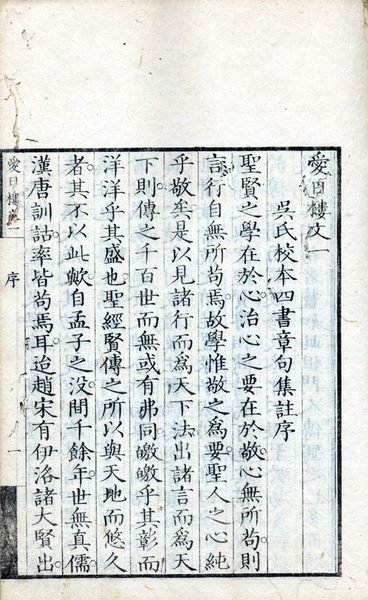 愛日樓文一
吳氏校本四書章句集註序
聖賢之學在於心治心之要在於敬心無所苟則
言行自無所苟焉故學惟敬之爲要聖人之心純
乎敬矣是以見諸行而爲天下法出諸言而爲天
下則傳之千百世而無或有弗同皦皦乎其彰而
洋洋乎其盛也聖經賢傳之所以與天地而悠久
者其不以此歟自孟子之没間千餘年世無真儒
漢唐訓詁率皆苟焉耳迨趙宋有伊洛諸大賢出
愛日樓卷一
序
一